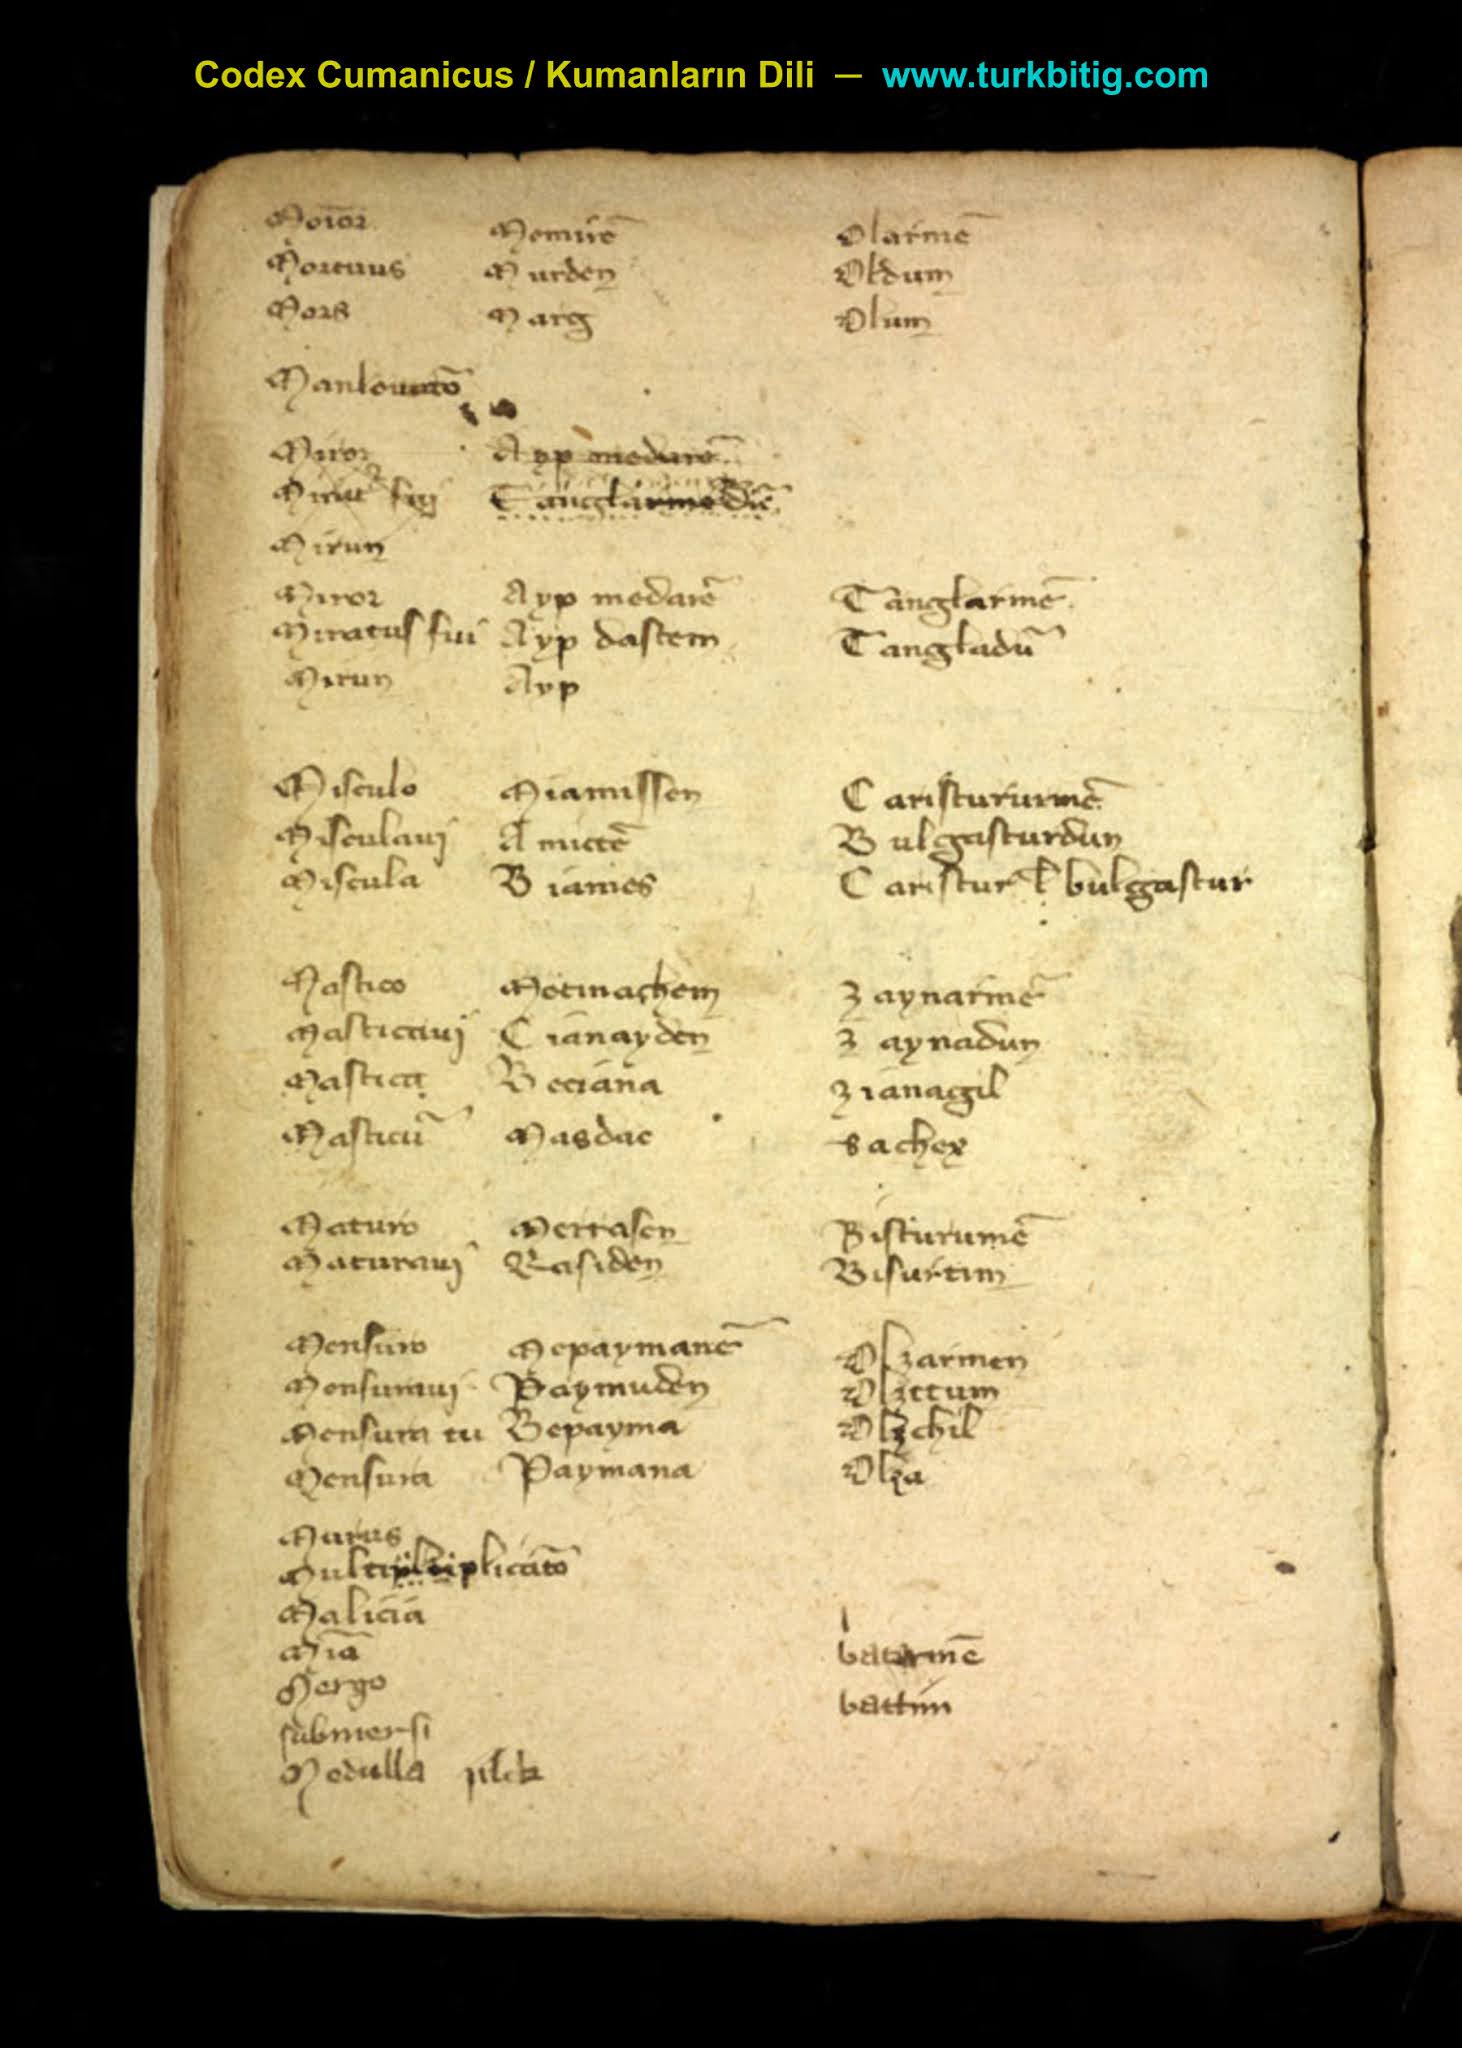 Codex Cumanicus / Kumanların Dili — www.turkbitig.com
Moĩor Memirẽ Olarmẽ
Mortuus Murden Oldum
Mors Marg Olum
Miror Ayp medarẽ
Mirun
Miror Ayp medarẽ Tanglarmẽ
Miratus fui Ayp dastem Tangladũ
Mirun Ayp
Misculo Miamissen Caristururmẽ
Misculaui Amictẽ Bulgasturdun
Miscula Biamies Caristur ł bulgastur
Mastico Meciuachem Zaynarmẽ
Masticaui Cianayden Zaynadun
Mastica Beciana Zianagil
Masticũ Masdac sachex
Maturo Merrasen Bisturumẽ
Maturaui Rasiden Bisurtim
Mensuro Mepaymanẽ Olzarmen
Mensuraui Paymuden Olzttum
Mensura tu Bepayma Olzchil
Mensura Paymana Olza
Murus
Malicia
Miã batarmẽ
Mergo
submersi battim
Medulla jilik